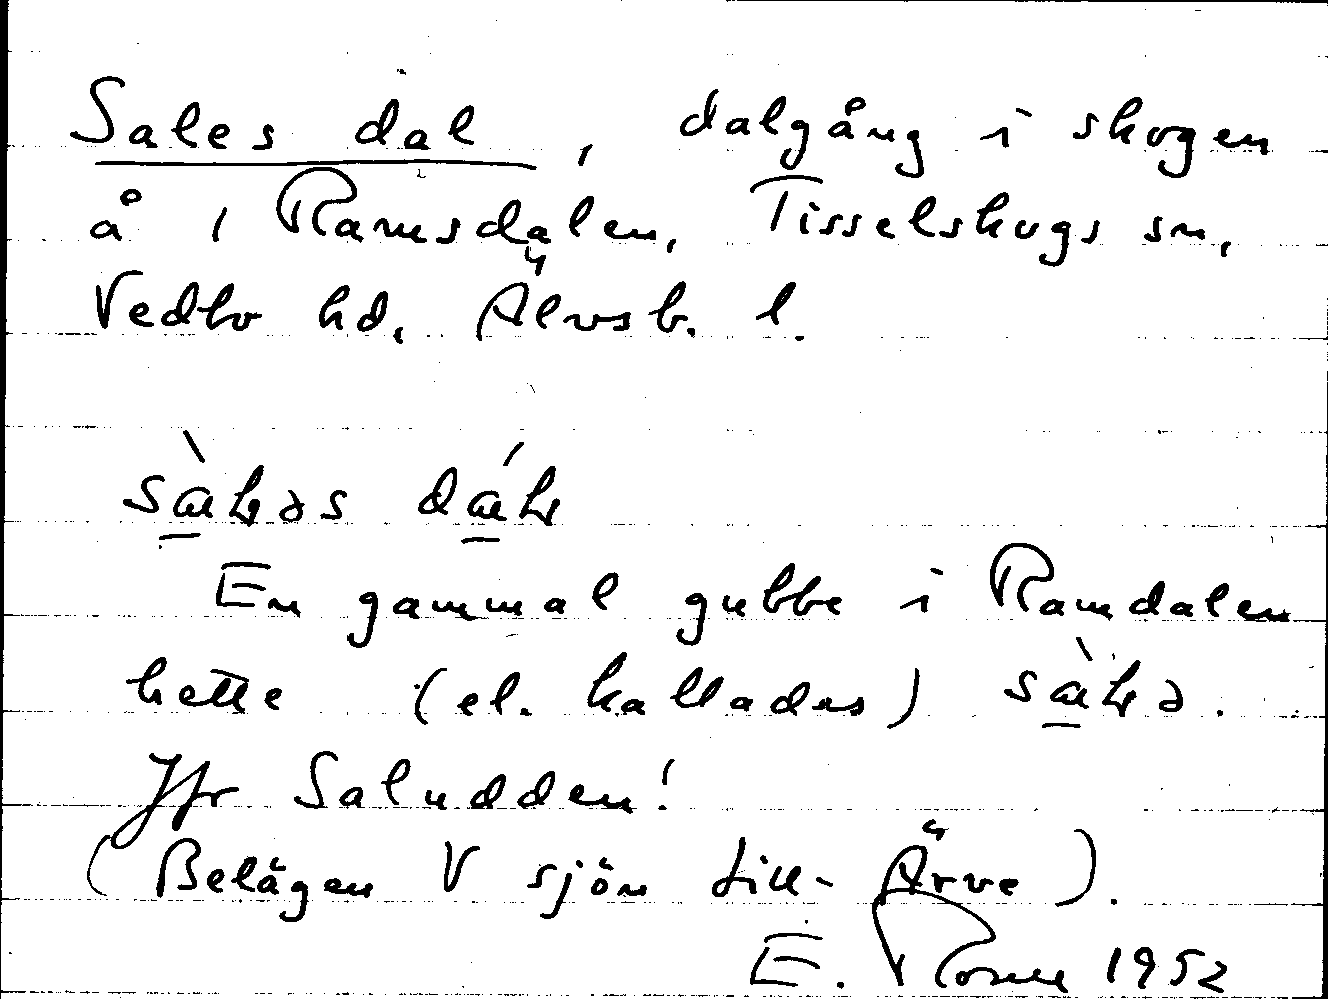 Sales dal, dalgång i skogen
å i Ramsdalen, Tisselskogs sn,
Vedbo hd, Älvsb. l.
sàɷləs dáɷl
En gammal gubbe i Ramdalen
hette (el. kallades)
Jfr Saludden!
(Belägen V sjön Lill-Ärve).
E. 1952